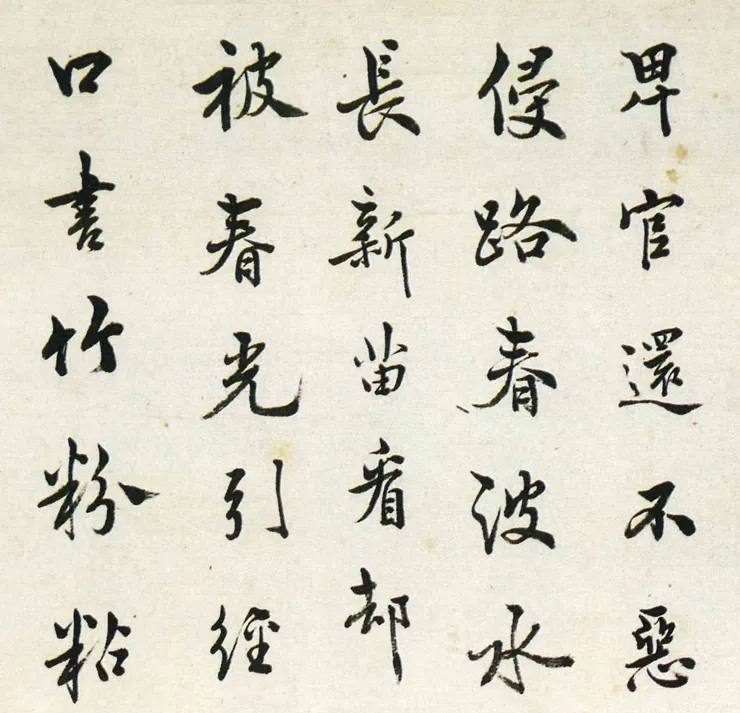 卑官還不惡
侵路春波水
長新苗看却
被春光引經
口書竹粉粘